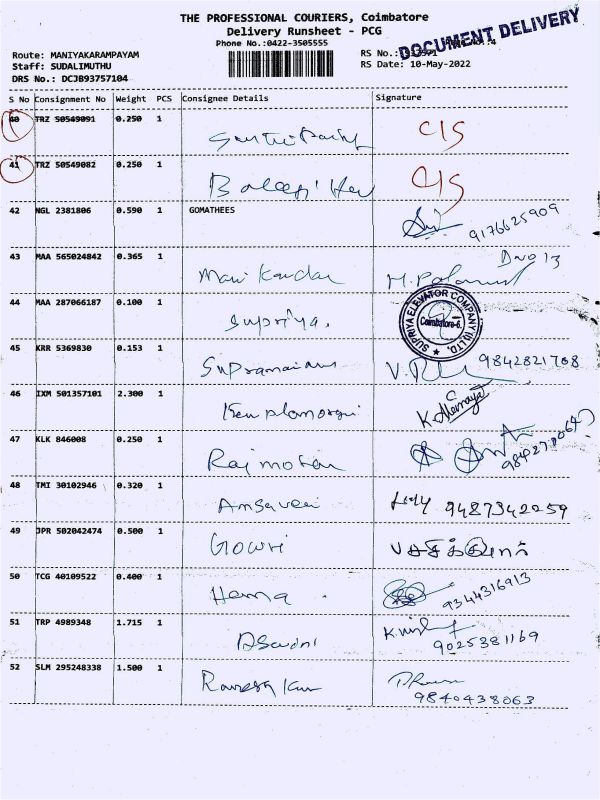 THE PROFESSIONAL COURIERS, Coimbatore
Delivery Runsheet - PCG
Phone No.:0422-3505555
DOCUMENT DELIVERY
Route: MANIYAKARAMPAYAM
RS No.:
Staff: SUDALIMUTHU
RS Date: 10-May-2022
DRS No.: DCJB93757104
S No Consignment No Weight PCS Consignee Details Signature
40 TRZ 50549091 0.250 1 CIS
41 TRZ 50549082 0.250 1 CIS
42 NGL 2381806 0.590 1 GOMATHEES 9176625909
43 MAA 565024842 0.365 1 Mani Kandan D No 13
44 MAA 287066187 0.100 1 Supriya. SUPRIYA ELEVATOR COMPANY (I) LTD. Coimbatore-6.
45 KRR 5369830 0.153 1 9842821708
46 IXM 501357101 2.300 1
47 KLK 846008 0.250 1 Raj mohan
48 TMI 30102946 0.320 1 9487342059
49 JPR 502042474 0.500 1 Gowri
50 TCG 40109522 0.400 1 Hema. 9344316913
51 TRP 4989348 1.715 1 9025381169
52 SLM 295248338 1.500 1 9840438063